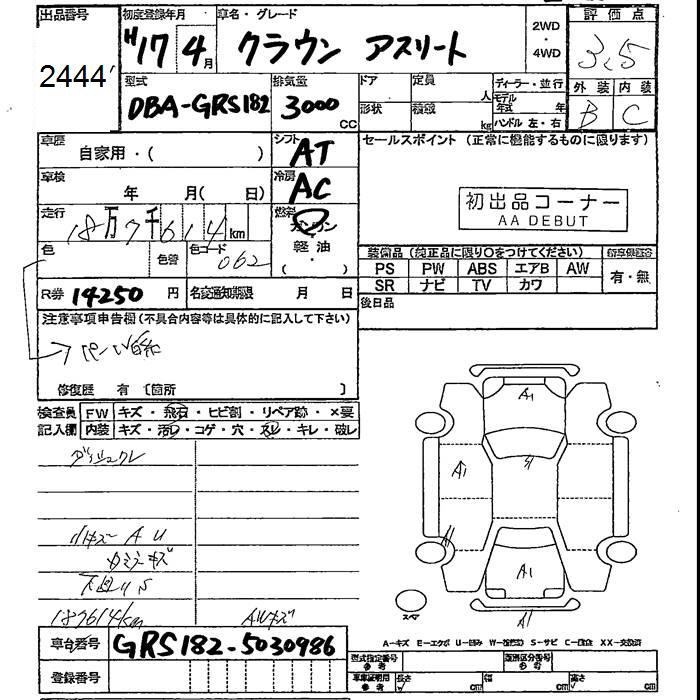 出品番号 初度登録年月 車名・グレード 2WD・4WD 評価点
2444 H17 4月 クラウン アスリート 3.5
型式 排気量 ドア 定員 人 ディーラー・並行 外装 内装
DBA-GRS182 3000 CC 形状 積載 kg モデル年式 年 ハンドル 左・右 B C
車歴 シフト セールスポイント (正常に機能するものに限ります)
自家用・( ) AT
車検 冷房
年 月( 日) AC
初出品コーナー
AA DEBUT
走行 燃料
18万7千614km ガソリン
軽油
・( )
色 色替 色コード 062
装備品 (純正品に限り○をつけてください)
PS PW ABS エアB AW 有・無
SR ナビ TV カワ
R券 14250 円 名変通知期限 月 日
後日品
注意事項申告欄(不具合内容等は具体的に記入して下さい)
修復歴 有 〔箇所 〕
検査員 FW キズ・飛石・ヒビ割・リペア跡・×要
記入欄 内装 キズ・汚レ・コゲ・穴・スレ・キレ・破レ
A1
A1
A1
A1
小キズ A U
下回りS
187614km AWキズ
スペア
A-キズ E-エクボ U-凹み W-(波打ち) S-サビ C-腐食 XX-交換済
車台番号 GRS182-5030986
登録番号
型式指定番号 参考 類別区分番号 参考
車庫証明用 参考 長さ cm 幅 cm 高さ cm